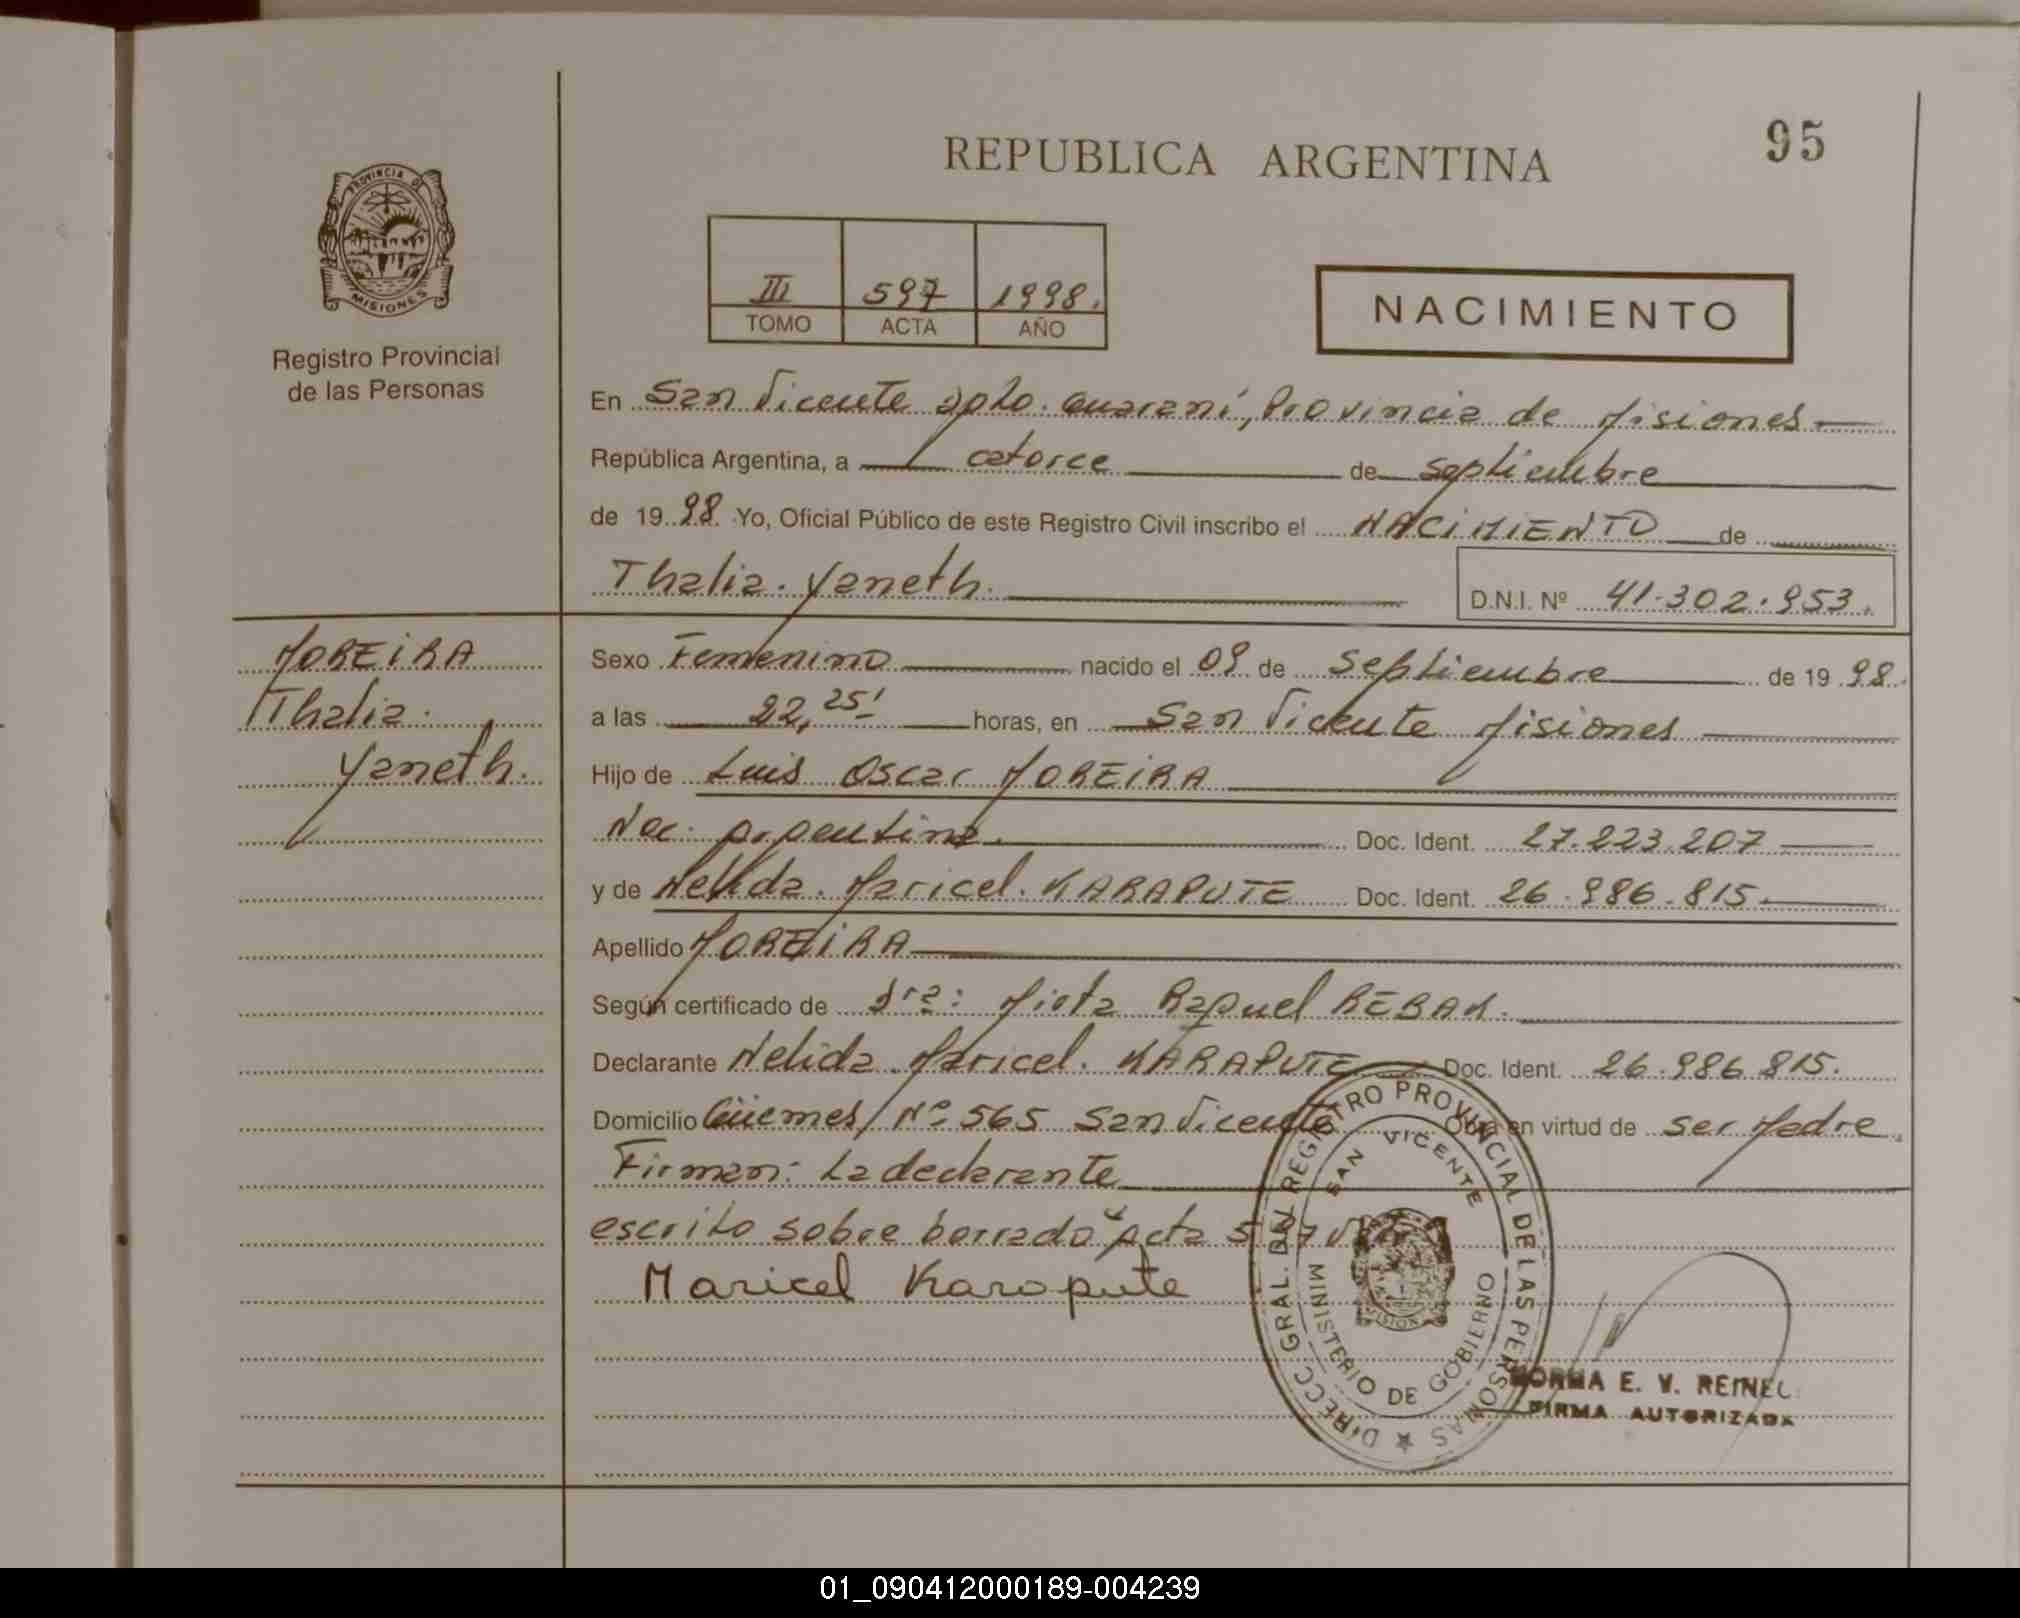 95
REPUBLICA ARGENTINA
PROVINCIA DE
MISIONES
Registro Provincial
de las Personas
III 597 1998.
TOMO ACTA AÑO
NACIMIENTO
En San Vicente Dpto. Guaraní, Provincia de Misiones
República Argentina, a catorce de septiembre
de 1998. Yo, Oficial Público de este Registro Civil inscribo el NACIMIENTO de
Thalia. Yaneth.
D.N.I. Nº 41.302.953.
MOREIRA
Thalia.
Yaneth.
Sexo Femenino nacido el 09 de Septiembre de 1998.
a las 22,25' horas, en San Vicente Misiones
Hijo de Luis Oscar MOREIRA
Nac. argentina. Doc. Ident. 27.223.207
y de Nelida. Maricel. KARAPUTE Doc. Ident. 26.986.815.
Apellido MOREIRA
Según certificado de Dra: Mirta Raquel
Declarante Nelida Maricel. KARAPUTE Doc. Ident. 26.986.815.
Domicilio Güemes Nº 565 San Vicente Obra en virtud de ser Madre.
Firman: La declarante
escrito sobre borrado "acta 597
Maricel Karapute
DIRECC. GRAL. DEL REGISTRO PROVINCIAL DE LAS PERSONAS
SAN VICENTE
MINISTERIO DE GOBIERNO
NORMA E. V. REINEL
FIRMA AUTORIZADA
01_090412000189-004239